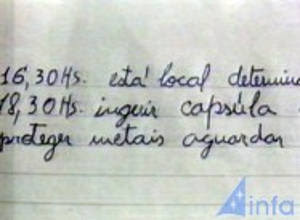 16,30 Hs. está local determina
18,30 Hs. ingerir capsúla
proteger metais aguardar
Ainfa